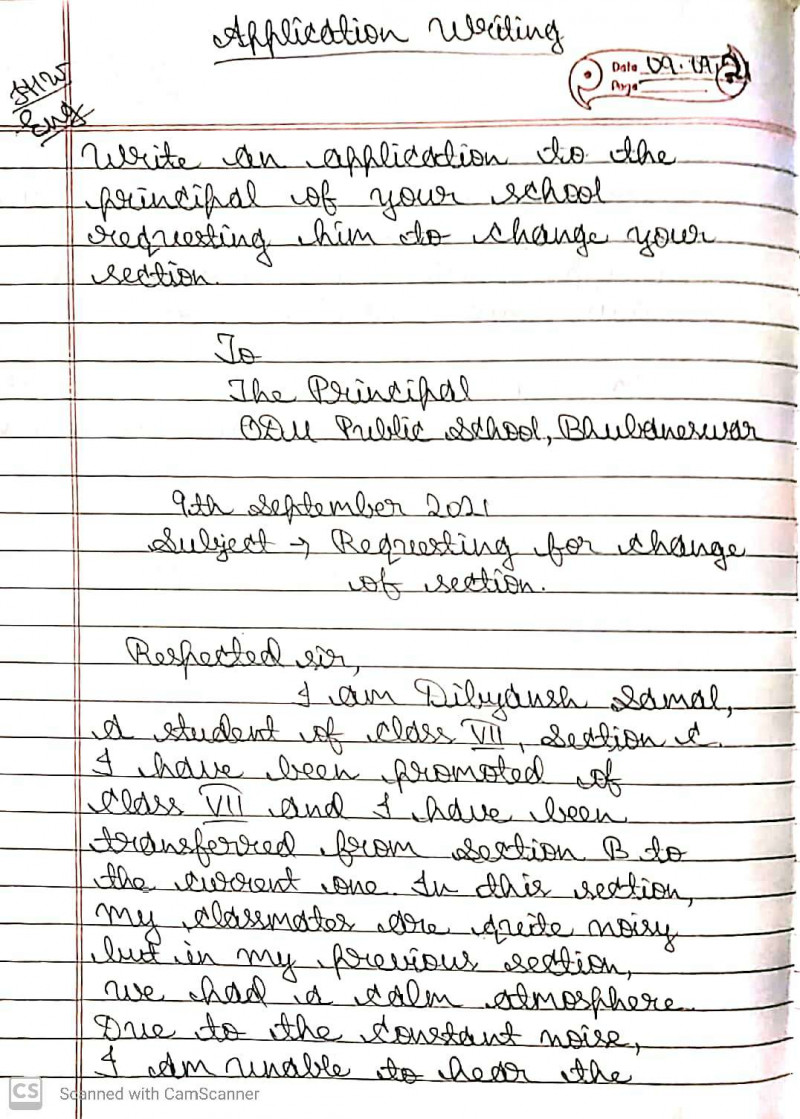 Application Writing
Date 09.09.21
Page
HW
Eng
Write an application to the
principal of your school
requesting him to change your
section.
To
The Principal
ODM Public School, Bhubaneswar
9th September 2021
Subject → Requesting for change
of section.
Respected sir,
I am Dibyansh Samal,
A student of class VII, Section C.
I have been promoted of
class VII and I have been
transferred from section B to
the current one. In this section,
my classmates are quite noisy
but in my previous section,
we had a calm atmosphere.
Due to the constant noise,
I am unable to hear the
CS Scanned with CamScanner